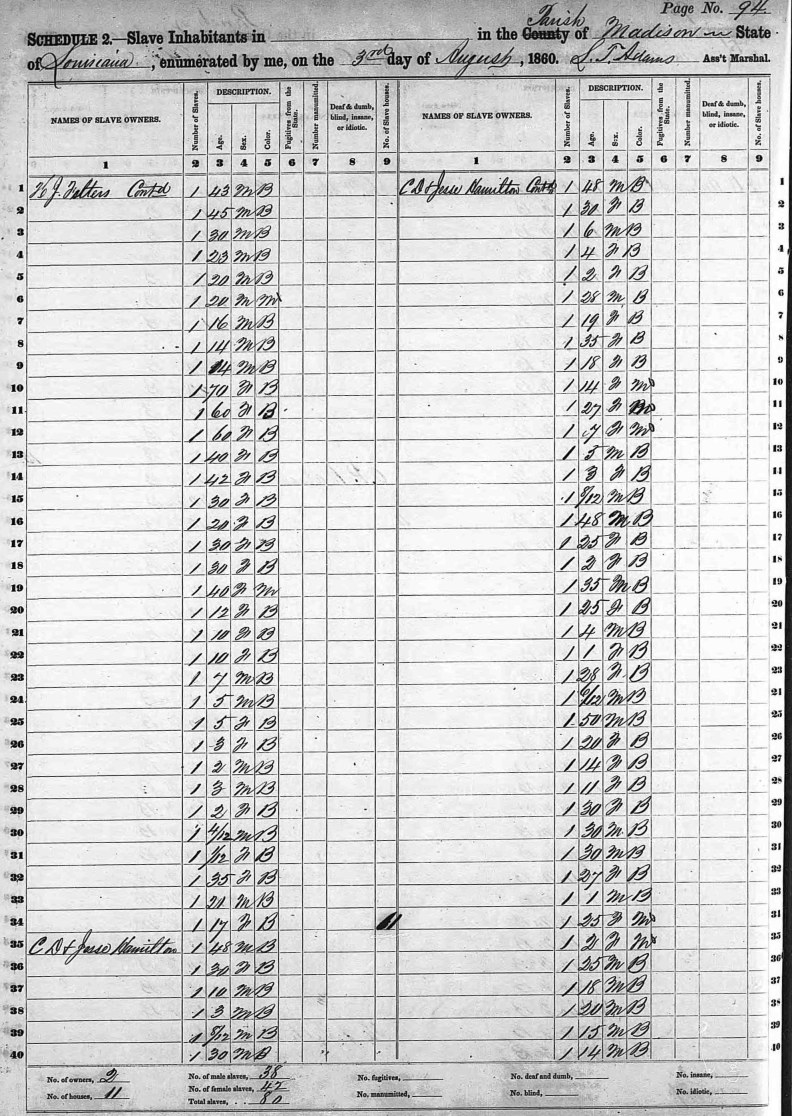 Page No. 94
SCHEDULE 2.—Slave Inhabitants in in the County Parish of Madison in State
of Louisiana, enumerated by me, on the 3rd day of August, 1860. S. T. Adams Ass't Marshal.
NAMES OF SLAVE OWNERS. Number of Slaves. DESCRIPTION. Age. Sex. Color. Fugitives from the State. Number manumitted. Deaf & dumb, blind, insane, or idiotic. No. of Slave houses. NAMES OF SLAVE OWNERS. Number of Slaves. DESCRIPTION. Age. Sex. Color. Fugitives from the State. Number manumitted. Deaf & dumb, blind, insane, or idiotic. No. of Slave houses.
1 2 3 4 5 6 7 8 9 1 2 3 4 5 6 7 8 9
1 H J. Felters Cont'd 1 43 M B C D & Jesse Hamilton Cont'd 1 48 M B 1
2 1 45 M B 1 30 F B 2
3 1 30 M B 1 6 M B 3
4 1 23 M B 1 4 F B 4
5 1 20 M B 1 2 F B 5
6 1 20 M M 1 28 M B 6
7 1 16 M B 1 19 F B 7
8 1 14 M B 1 35 F B 8
9 1 14 M B 1 18 F B 9
10 1 70 F B 1 14 F M 10
11 1 60 F B 1 27 F M 11
12 1 60 F B 1 7 F M 12
13 1 40 F B 1 5 M B 13
14 1 42 F B 1 3 F B 14
15 1 30 F B 1 /12 M B 15
16 1 20 F B 1 48 M B 16
17 1 30 F B 1 25 F B 17
18 1 30 F B 1 2 F B 18
19 1 40 F M 1 35 M B 19
20 1 12 F B 1 25 F B 20
21 1 10 F B 1 4 M B 21
22 1 10 F B 1 1 F B 22
23 1 7 M B 1 28 F B 23
24 1 5 M B 1 6/12 M B 24
25 1 5 F B 1 50 M B 25
26 1 3 F B 1 20 F B 26
27 1 2 M B 1 14 F B 27
28 1 3 M B 1 11 F B 28
29 1 2 F B 1 30 F B 29
30 1 4/12 M B 1 30 M B 30
31 1 1/12 F B 1 30 M B 31
32 1 35 F B 1 27 F B 32
33 1 21 M B 1 1 M B 33
34 1 17 F B 11 1 25 F M 34
35 C D & Jesse Hamilton 1 48 M B 1 2 F M 35
36 1 30 F B 1 25 M B 36
37 1 10 M B 1 18 M B 37
38 1 3 M B 1 20 M B 38
39 1 8/12 M B 1 15 M B 39
40 1 30 M B 1 14 M B 40
No. of owners, 2 No. of male slaves, 38 No. fugitives, No. of deaf and dumb, No. insane,
No. of houses, 11 No. of female slaves, 42 No. manumitted, No. blind, No. idiotic,
Total slaves, 80